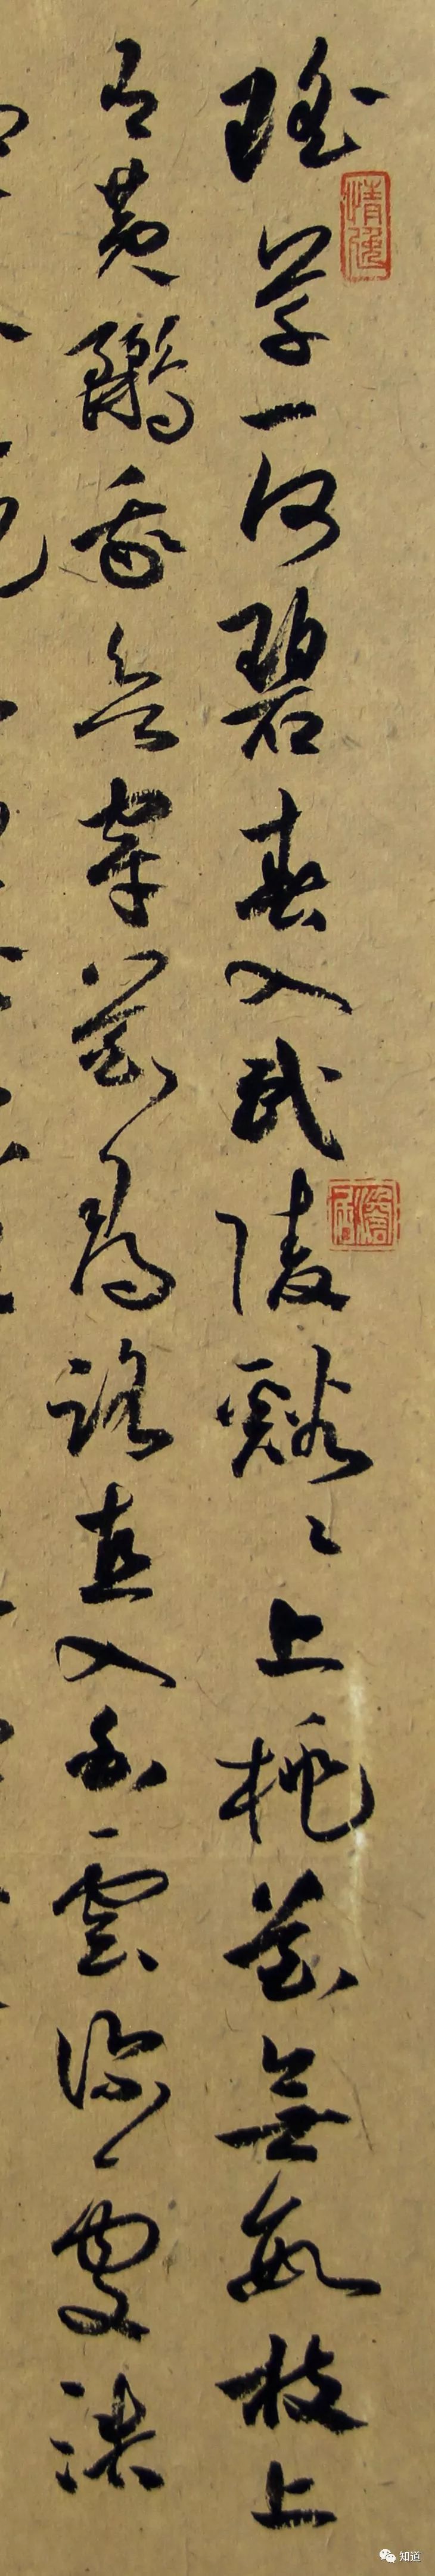 瑤草一何碧春入武陵谿〻上桃花無數枝上
有黃鸝我欲穿花尋路直入白雲深處浩
知道